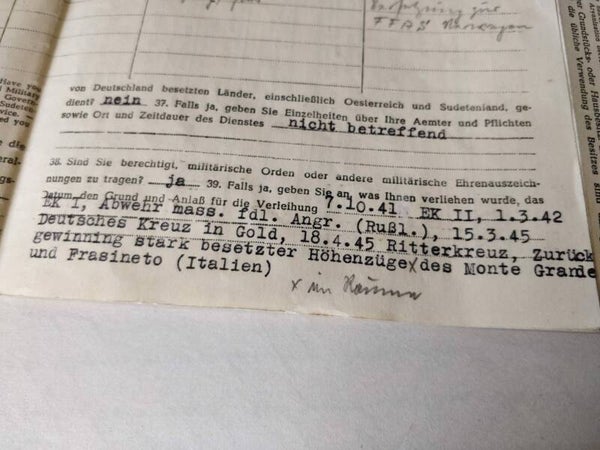 von Deutschland besetzten Länder, einschließlich Oesterreich und Sudetenland, ge-
dient? nein 37. Falls ja, geben Sie Einzelheiten über Ihre Aemter und Pflichten
sowie Ort und Zeitdauer des Dienstes nicht betreffend
38. Sind Sie berechtigt, militärische Orden oder andere militärische Ehrenauszeich-
nungen zu tragen? ja 39. Falls ja, geben Sie an, was Ihnen verliehen wurde, das
Datum den Grund und Anlaß für die Verleihung 7.10.41 EK II, 1.3.42
EK I, Abwehr mass. fdl. Angr. (Rußl.), 15.3.45
Deutsches Kreuz in Gold, 18.4.45 Ritterkreuz, Zurück
gewinning stark besetzter Höhenzüge x des Monte Grande
und Frasineto (Italien)
x im Raume
Have you
Govern
Sudete
vice.
ed you
die
eral-
gs-
Grundstücks- oder
die übliche Verwendung des Besitzes sind